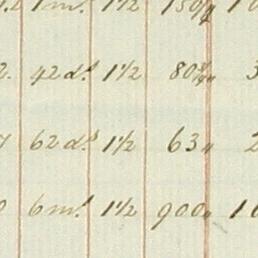 1 m.s 1½ 150
2. 42 d.s 1½ 80 3
7 62 d.s 1½ 63 " 2
0 6 m.s 1½ 900 " 10